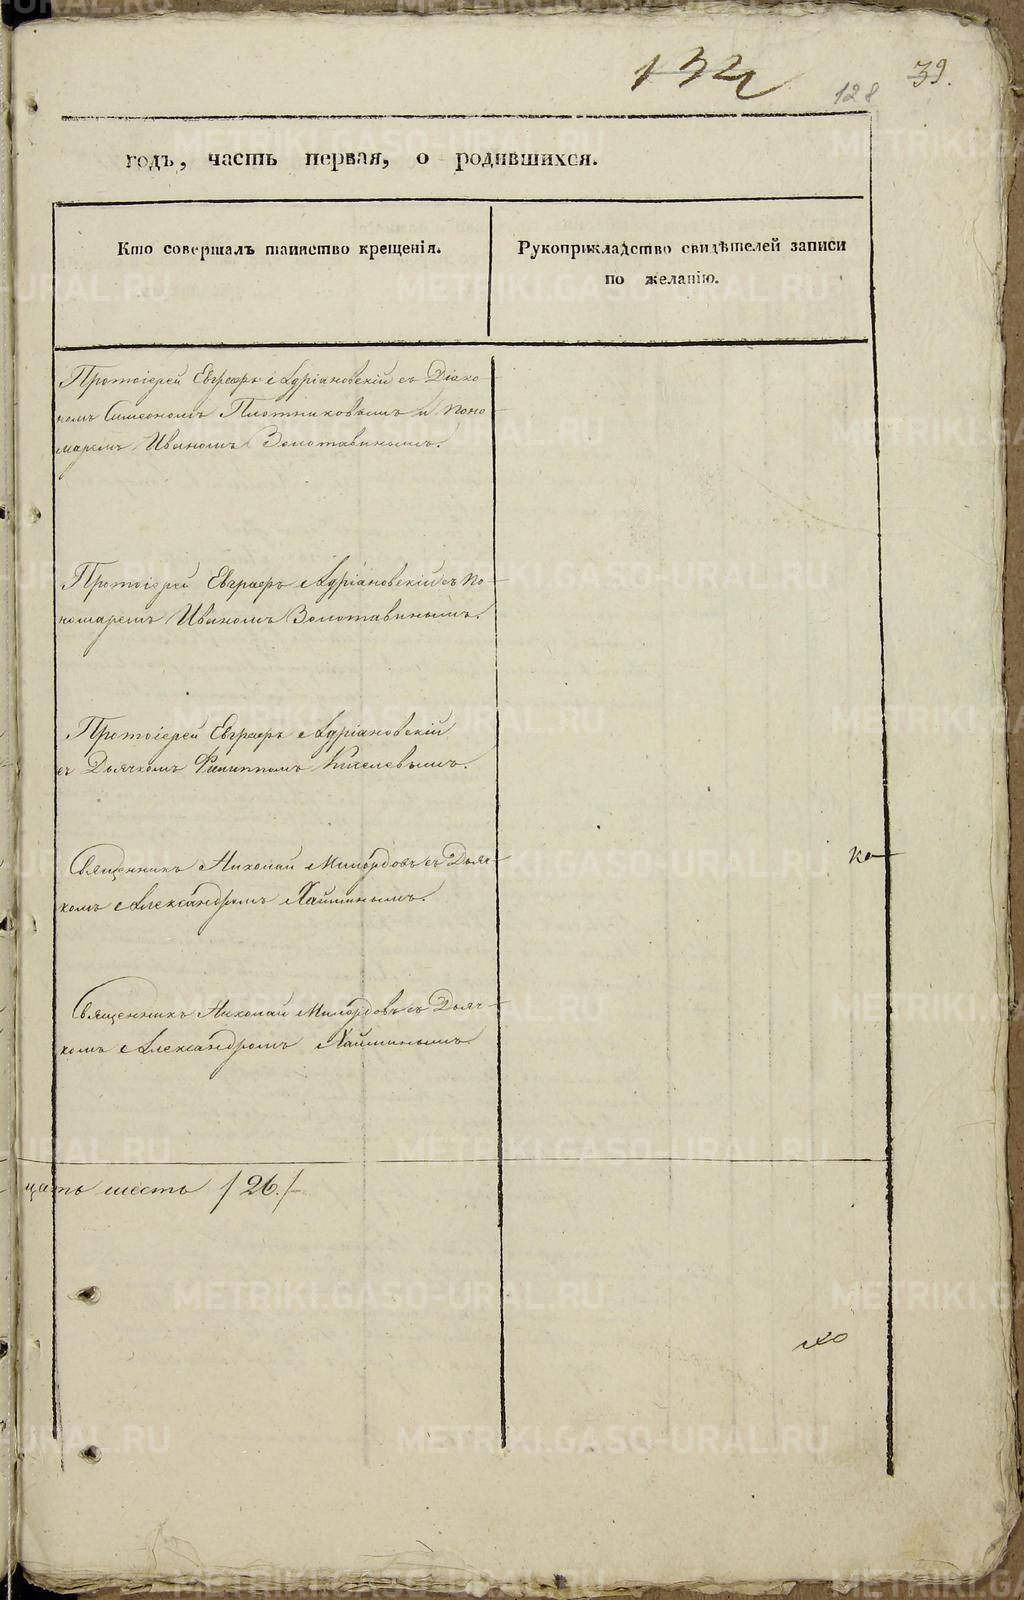 132
128
39.
годъ, часть первая, о родившихся.
Кто совершалъ таинство крещенія.
Рукоприкладство свидѣтелей записи
по желанію.
Протоіерей Евграфъ Адріановскій съ Діако-
номъ Симеономъ Плотниковымъ и поно-
маремъ Иваномъ Золотавинымъ.
Протоіерей Евграфъ Адріановскій съ по-
номаремъ Иваномъ Золотавинымъ.
Протоіерей Евграфъ Адріановскій
съ Дьячкомъ Филиппомъ Киселевымъ.
Священникъ Николай Милордовъ съ Дьяч-
комъ Александромъ Хайминымъ.
ко-
Священникъ Николай Милордовъ съ Дьяч-
комъ Александромъ Хайминымъ
цать шесть /26./-
METRIKI.GASO-URAL.RU